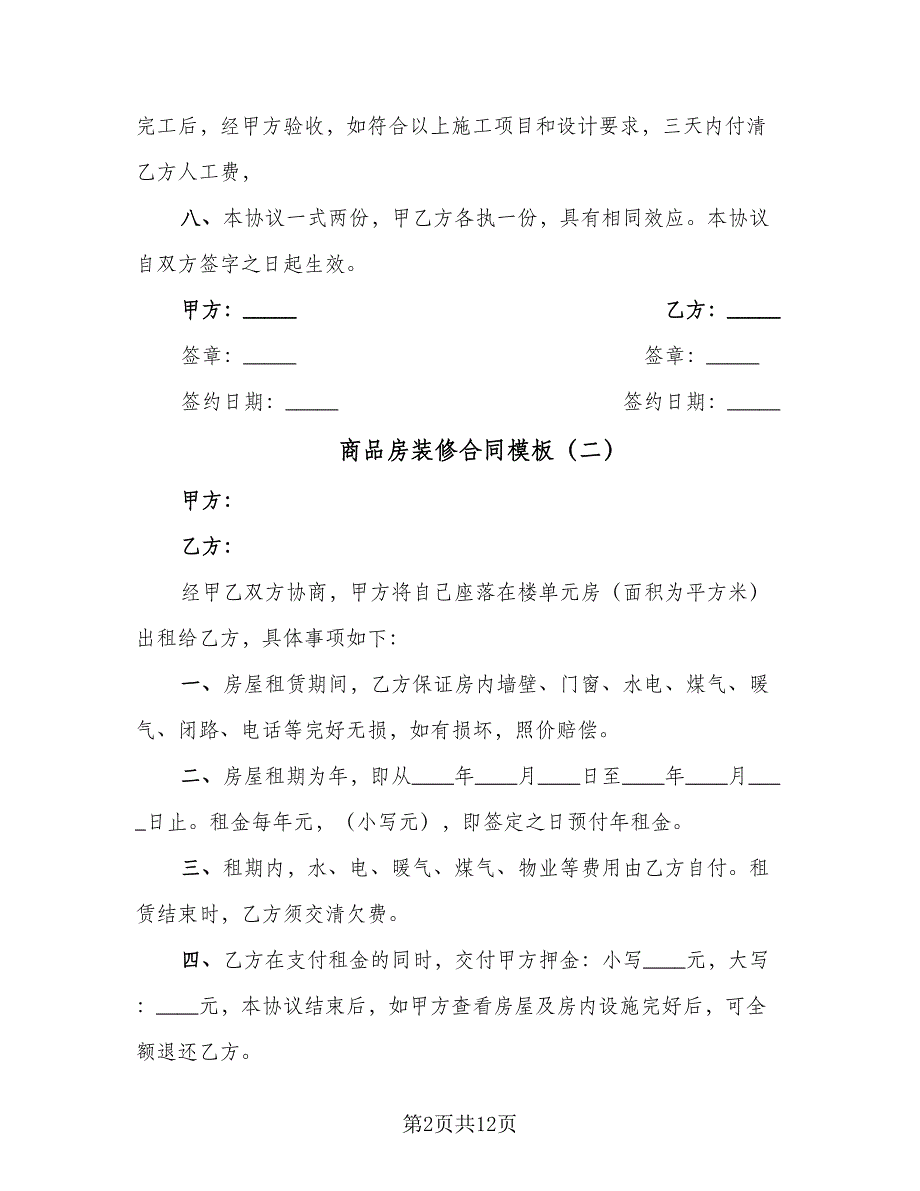 完工后，经甲方验收，如符合以上施工项目和设计要求，三天内付清
乙方人工费，
八、本协议一式两份，甲乙方各执一份，具有相同效应。本协议
自双方签字之日起生效。
甲方：_____ 乙方：_____
签章：_____ 签章：_____
签约日期：_____ 签约日期：_____
商品房装修合同模板（二）
甲方：
乙方：
经甲乙双方协商，甲方将自己座落在楼单元房（面积为平方米）
出租给乙方，具体事项如下：
一、房屋租赁期间，乙方保证房内墙壁、门窗、水电、煤气、暖
气、闭路、电话等完好无损，如有损坏，照价赔偿。
二、房屋租期为年，即从____年____月____日至____年____月___
_日止。租金每年元，（小写元），即签定之日预付年租金。
三、租期内，水、电、暖气、煤气、物业等费用由乙方自付。租
赁结束时，乙方须交清欠费。
四、乙方在支付租金的同时，交付甲方押金：小写____元，大写
：____元，本协议结束后，如甲方查看房屋及房内设施完好后，可全
额退还乙方。
第2页共12页